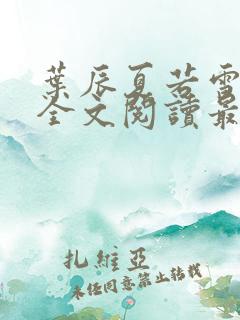 葉辰夏若雪
全文閱讀最
扎維亞
未經同意禁止轉載